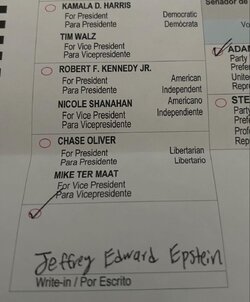 KAMALA D. HARRIS
For President Democratic
Para Presidente Demócrata
TIM WALZ
For Vice President
Para Vicepresidente
ROBERT F. KENNEDY JR.
For President American
Para Presidente Independent
NICOLE SHANAHAN Americano
For Vice President Independiente
Para Vicepresidente
CHASE OLIVER
For President Libertarian
Para Presidente Libertario
MIKE TER MAAT
For Vice President
Para Vicepresidente
Jeffrey Edward Epstein
Write-in / Por Escrito
Senador de
ADA
Party
Prefe
United
Repre
STE
Party
Prefe
Repr